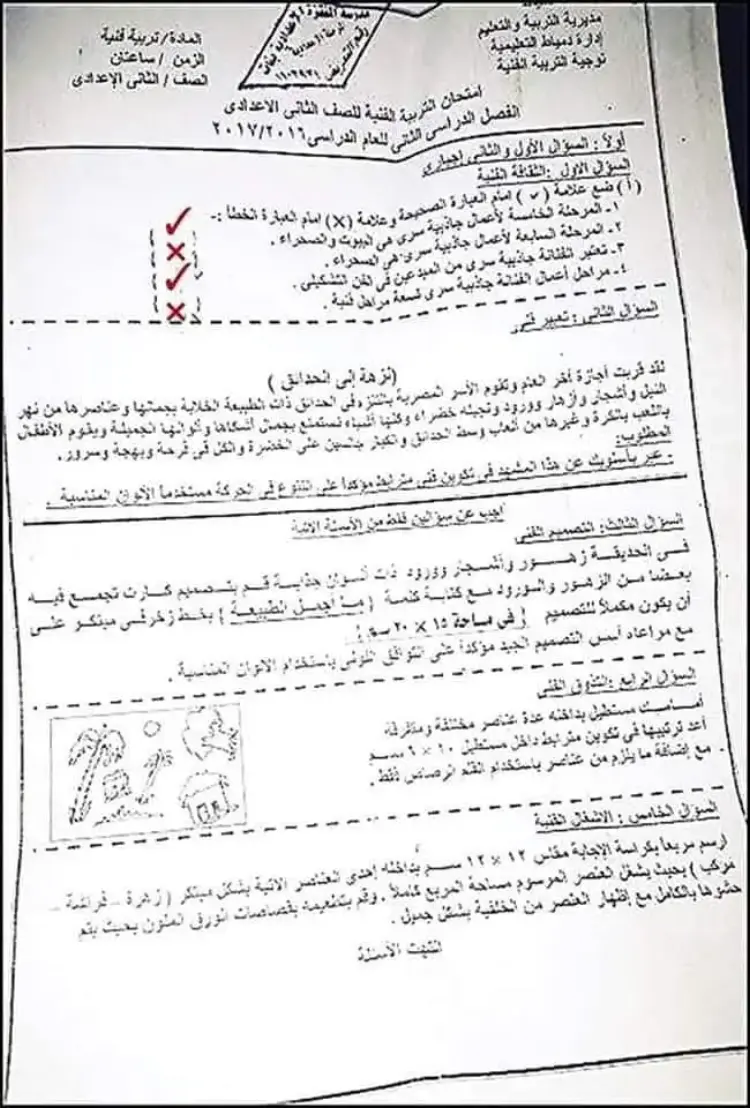 مديرية التربية والتعليم
إدارة دمياط التعليمية
توجية التربية الفنية
المادة / تربية فنية
الزمن / ساعتان
الصف / الثانى الإعدادى
امتحان التربية الفنية للصف الثانى الاعدادى
الفصل الدراسى الثانى للعام الدراسى ٢٠١٧/٢٠١٦
أولاً : السؤال الأول والثانى إجبارى
السؤال الاول : الثقافة الفنية
(أ) ضع علامة (✓) امام العبارة الصحيحة وعلامة (X) امام العبارة الخطأ :-
١- المرحلة الخامسة لأعمال جاذبية سرى هى البيوت والصحراء .
٢- المرحلة السابعة لأعمال جاذبية سرى هى الصحراء .
٣- تعتبر الفنانة جاذبية سرى من المبدعين فى الفن التشكيلى .
٤- مراحل أعمال الفنانة جاذبية سرى تسعة مراحل فنية .
السؤال الثانى : تعبير فنى
(نزهة إلى الحدائق )
لقد قربت أجازة أخر العام وتقوم الأسر المصرية بالتنزه فى الحدائق ذات الطبيعة الخلابة بجمالها وعناصرها من نهر
النيل وأشجار وأزهار وورود ونجيله خضراء وكلها أشياء نستمتع بجمال أشكالها وألوانها الجميلة ويقوم الأطفال
باللعب بالكرة وغيرها من ألعاب وسط الحدائق والكبار جالسين على الخضرة والكل فى فرحة وبهجة وسرور .
المطلوب:
- عبر بأسلوبك عن هذا المشهد فى تكوين فنى مترابط مؤكداً على التنوع فى الحركة مستخدماً الألوان المناسبة .
أجب عن سؤالين فقط من الأسئلة الاتية
السؤال الثالث: التصميم الفنى
فى الحديقة زهور وأشجار وورود ذات ألوان جذابة قم بتصميم كارت تجمع فيه
بعضا من الزهور والورود مع كتابة كلمة { ما أجمل الطبيعة } بخط زخرفى مبتكر على
أن يكون مكملاً للتصميم { فى مساحة ١٥ × ٢٠ سم }
مع مراعاه أسس التصميم الجيد مؤكداً على التوافق اللونى باستخدام الالوان المناسبة .
السؤال الرابع : التذوق الفنى
أمامك مستطيل بداخله عدة عناصر مختلفة ومتفرقة
أعد ترتيبها فى تكوين مترابط داخل مستطيل ١٠ × ٦ سم
مع إضافة ما يلزم من عناصر باستخدام القلم الرصاص فقط .
السؤال الخامس : الاشغال الفنية
ارسم مربعاً بكراسة الإجابة مقاس ١٢ × ١٢ سم بداخله إحدى العناصر الاتية بشكل مبتكر ( زهرة – فراشة –
مركب ) بحيث يشغل العنصر المرسوم مساحة المربع كاملاً . وقم بتنغيمه بقصاصات الورق الملون بحيث يتم
حشوها بالكامل مع إظهار العنصر من الخلفية بشكل جميل .
انتهت الأسئلة